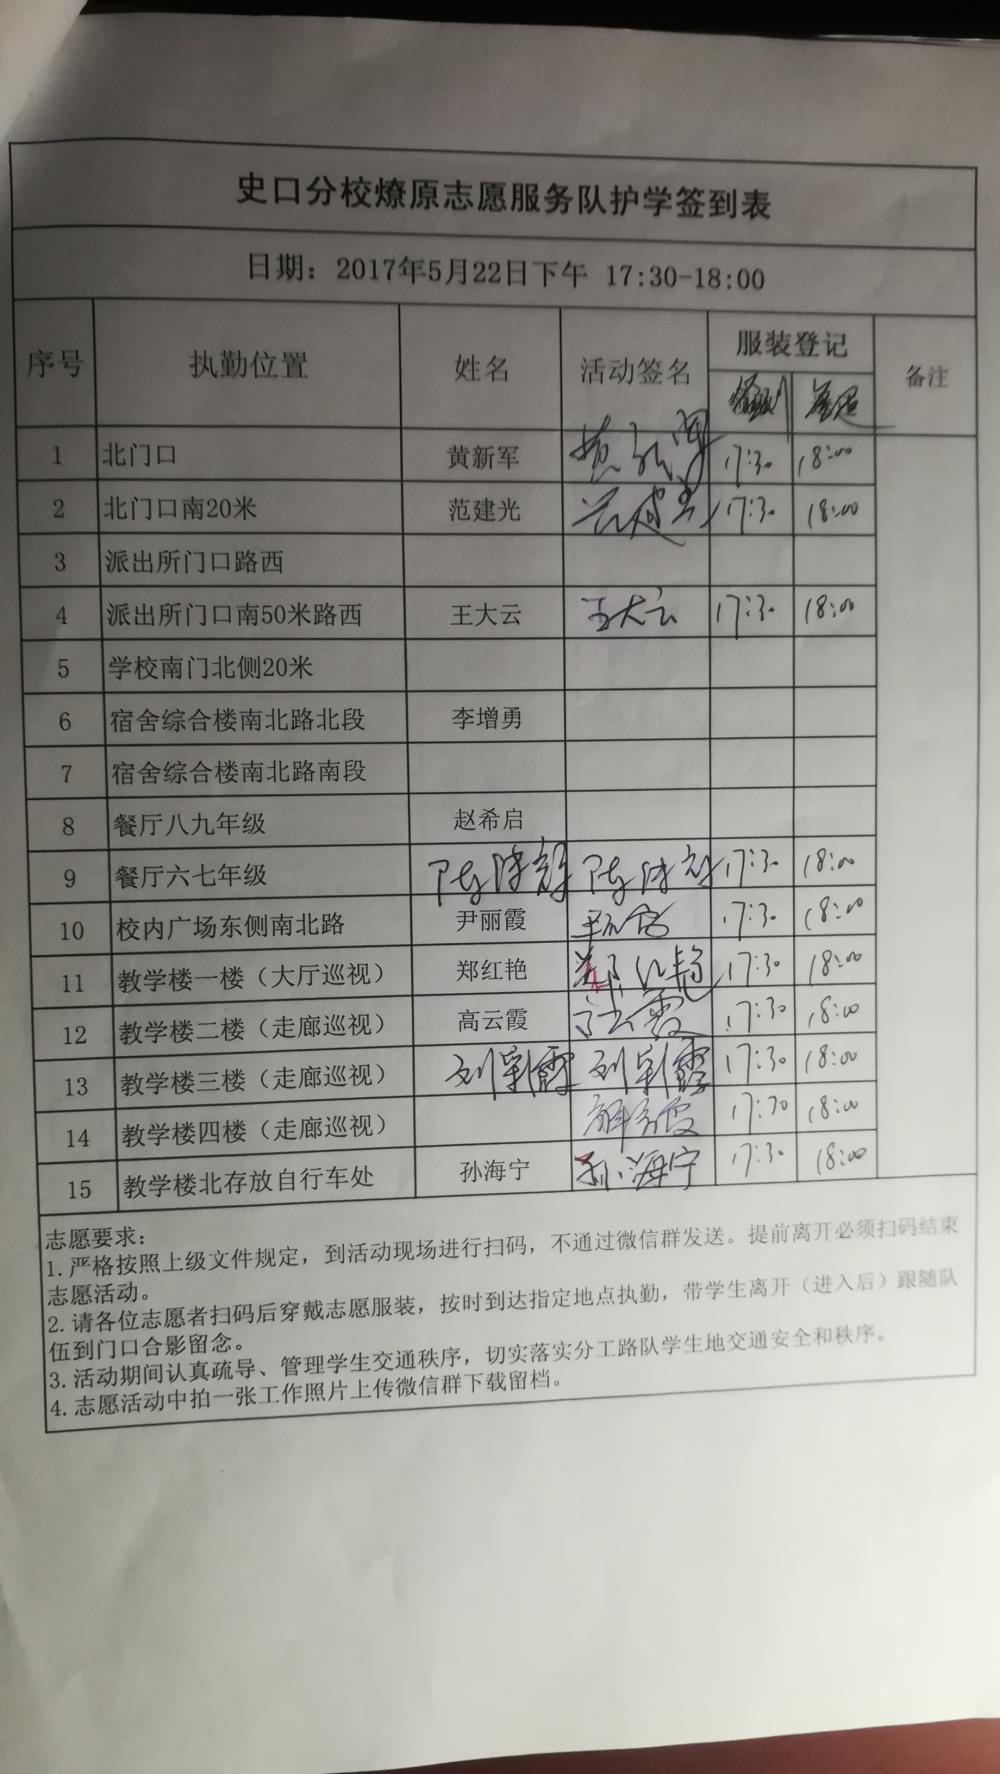 史口分校燎原志愿服务队护学签到表
日期：2017年5月22日下午 17:30-18:00
序号 执勤位置 姓名 活动签名 服装登记 备注
1 北门口 黄新军 黄新军 17:30 18:00
2 北门口南20米 范建光 范建光 17:30 18:00
3 派出所门口路西
4 派出所门口南50米路西 王大云 王大云 17:30 18:00
5 学校南门北侧20米
6 宿舍综合楼南北路北段 李增勇
7 宿舍综合楼南北路南段
8 餐厅八九年级 赵希启
9 餐厅六七年级 17:30 18:00
10 校内广场东侧南北路 尹丽霞 17:30 18:00
11 教学楼一楼（大厅巡视） 郑红艳 郑红艳 17:30 18:00
12 教学楼二楼（走廊巡视） 高云霞 17:30 18:00
13 教学楼三楼（走廊巡视） 17:30 18:00
14 教学楼四楼（走廊巡视） 17:30 18:00
15 教学楼北存放自行车处 孙海宁 孙海宁 17:30 18:00
志愿要求：
1.严格按照上级文件规定，到活动现场进行扫码，不通过微信群发送。提前离开必须扫码结束
志愿活动。
2.请各位志愿者扫码后穿戴志愿服装，按时到达指定地点执勤，带学生离开（进入后）跟随队
伍到门口合影留念。
3.活动期间认真疏导、管理学生交通秩序，切实落实分工路队学生地交通安全和秩序。
4.志愿活动中拍一张工作照片上传微信群下载留档。